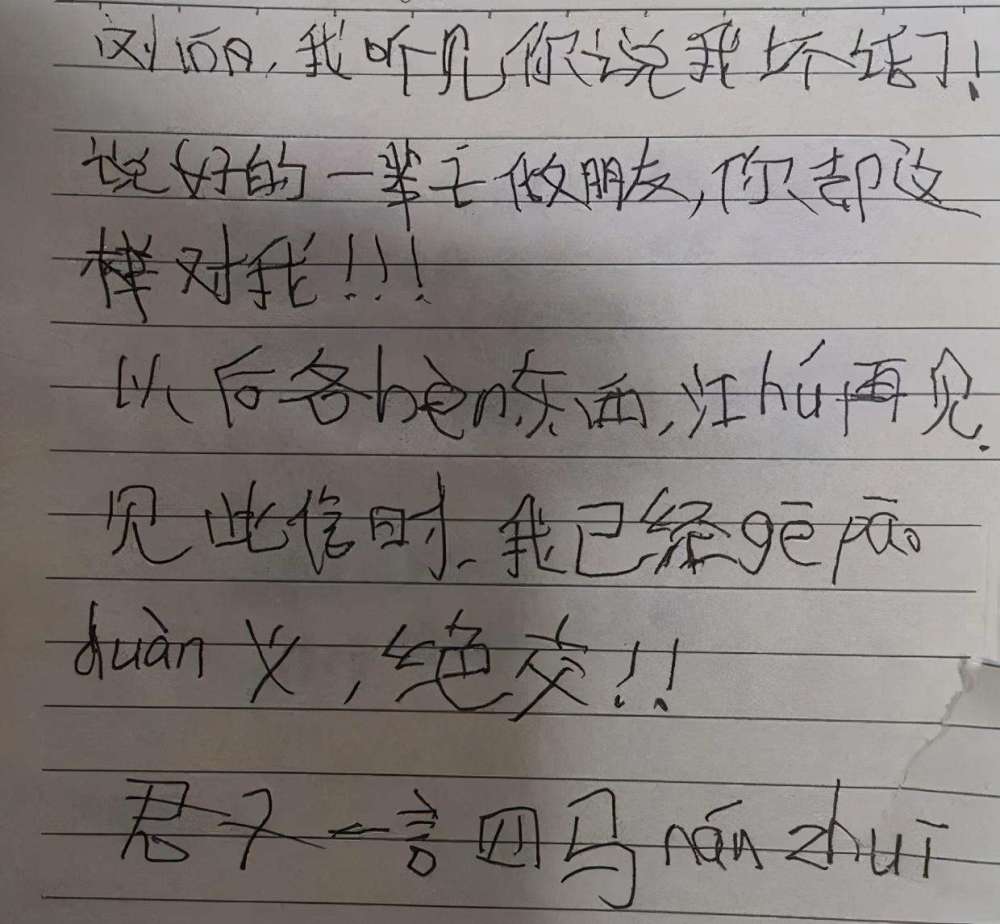 刘ii阳,我听见你说我坏话了!
说好的一辈子做朋友,你却这
样对我!!!
以后各bèn东西,江hú再见.
见此信时.我已经gē pāo
duàn义,绝交!!
君子一言四马nán zhuī